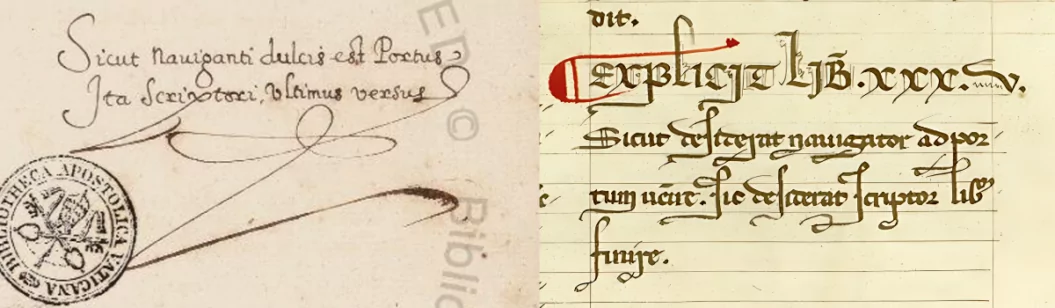 Sicut Nauiganti dulcis est Portus
Ita Scriptori, Vltimus versus
BIBLIOTHECA APOSTOLICA VATICANA
ED © Biblio
dit.
Explicit Lib̄. xxx.v.
Sicut desiderat nauigator ad por
tum uenire. sic desiderat scriptor lib
finire.